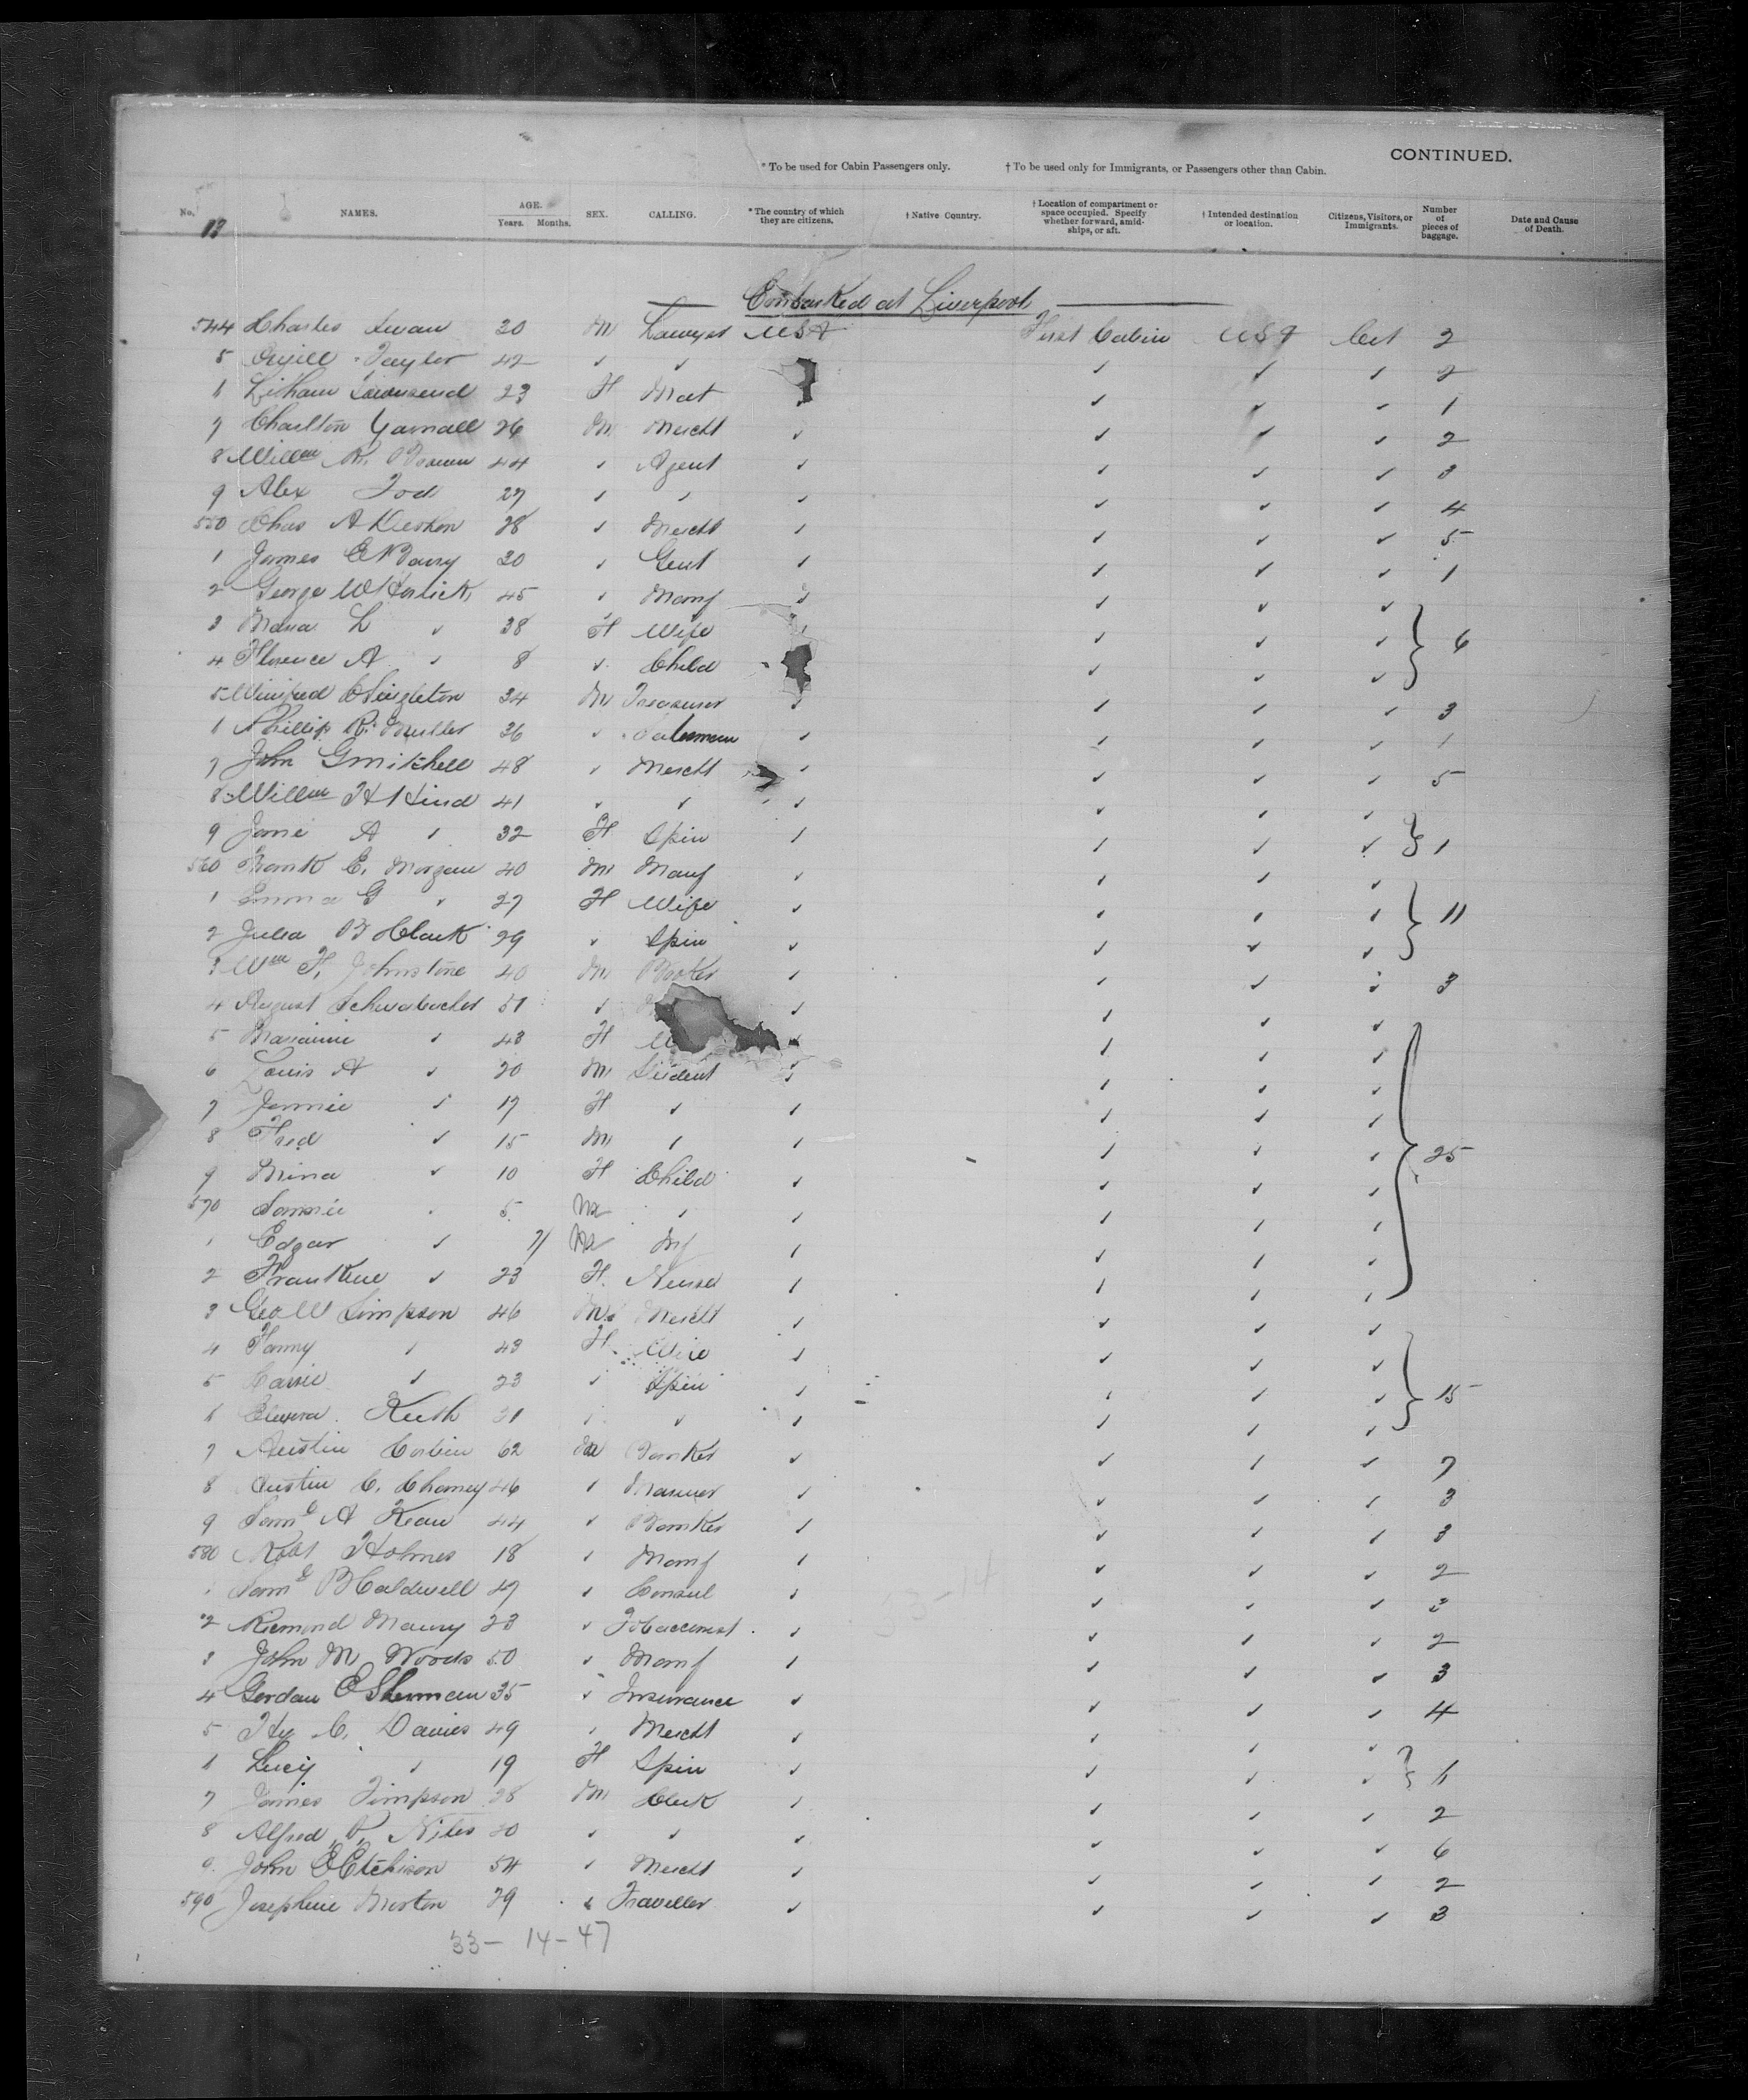 CONTINUED.
* To be used for Cabin Passengers only. † To be used only for Immigrants, or Passengers other than Cabin.
No. NAMES. AGE. Years. Months. SEX. CALLING. * The country of which they are citizens. † Native Country. † Location of compartment or space occupied. Specify whether forward, amidships, or aft. † Intended destination or location. Citizens, Visitors, or Immigrants. Number of pieces of baggage. Date and Cause of Death.
13
Embarked at Liverpool
544 Charles Swan 30 M Lawyer USA First Cabin USA Cit 2
5 Taylor 42 ✓ ✓ ✓ ✓ ✓ 2
6 Townsend 23 F ✓ ✓ ✓ ✓ 1
7 Charlton Yarnall 26 M Mercht ✓ ✓ ✓ ✓ 2
8 Willm R. Brown 44 ✓ Agent ✓ ✓ ✓ ✓ 3
9 Alex Tod 27 ✓ ✓ ✓ ✓ ✓ ✓ 4
550 Chas A 28 ✓ Mercht ✓ ✓ ✓ ✓ 5
1 James E 30 ✓ Gent ✓ ✓ ✓ ✓ 1
2 George W 45 ✓ Manf ✓ ✓ ✓ ✓
3 Maria L ✓ 38 F Wife ✓ ✓ ✓ ✓ } 6
4 Florence A ✓ 8 ✓ Child ✓ ✓ ✓
5 Winifred Singleton 34 M Treasurer ✓ ✓ ✓ ✓ 3
6 Phillip R. Muller 36 ✓ Salesman ✓ ✓ ✓ ✓ 1
7 John G Mitchell 48 ✓ Mercht ✓ ✓ ✓ ✓ 5
8 Willm H Hind 41 ✓ ✓ ✓ ✓ ✓ ✓
9 Jane A ✓ 32 F Spin ✓ ✓ ✓ ✓ } 1
560 Frank E. Morgan 40 M Manf ✓ ✓ ✓ ✓
1 Emma G ✓ 27 F Wife ✓ ✓ ✓ ✓ } 11
2 Julia B Clark 29 ✓ Spin ✓ ✓ ✓ ✓
3 Wm F. Johnstone 40 M ✓ ✓ ✓ ✓ 3
4 August Schwabacher 51 ✓ ✓ ✓ ✓ ✓
5 ✓ 43 F ✓ ✓ ✓
6 Louis A ✓ 20 M Student ✓ ✓ ✓ ✓
7 Jennie ✓ 17 F ✓ ✓ ✓ ✓ ✓
8 Fred ✓ 15 M ✓ ✓ ✓ ✓ ✓ } 25
9 Mina ✓ 10 F Child ✓ ✓ ✓ ✓
570 ✓ 5 M ✓ ✓ ✓ ✓ ✓
1 Edgar ✓ 7/ M Inf ✓ ✓ ✓ ✓
2 ✓ 23 F. Nurse ✓ ✓ ✓ ✓
3 Geo W Simpson 46 M Mercht ✓ ✓ ✓ ✓
4 Fanny ✓ 43 F Wife ✓ ✓ ✓ ✓
5 Carrie ✓ 23 ✓ Spin ✓ ✓ ✓ ✓ } 15
6 Keith 21 ✓ ✓ ✓ ✓ ✓ ✓
7 Austin Corbin 62 M Banker ✓ ✓ ✓ ✓ 7
8 Austin C. 46 ✓ ✓ ✓ ✓ ✓ 3
9 Saml A Kean 44 ✓ Banker ✓ ✓ ✓ ✓ 3
580 Robt Holmes 18 ✓ Manf ✓ ✓ ✓ ✓ 2
1 Saml B Caldwell 47 ✓ Consul ✓ ✓ ✓ ✓ 3
2 Maury 23 ✓ Tobacconist ✓ ✓ ✓ ✓ 2
3 John M Woods 50 ✓ Manf ✓ ✓ ✓ ✓ 3
4 Gordan E Sherman 35 ✓ Insurance ✓ ✓ ✓ ✓ 4
5 Hy C. Davies 49 ✓ Mercht ✓ ✓ ✓ ✓
6 Lucy ✓ 19 F Spin ✓ ✓ ✓ ✓ } 6
7 James Timpson 28 M Clerk ✓ ✓ ✓ ✓ 2
8 Alfred P. Niles 20 ✓ ✓ ✓ ✓ ✓ ✓ 6
9 John E Etchison 54 ✓ Mercht ✓ ✓ ✓ ✓ 2
590 Josephine Morton 29 ✓ Traveller ✓ ✓ ✓ ✓ 3
33 — 14 — 47